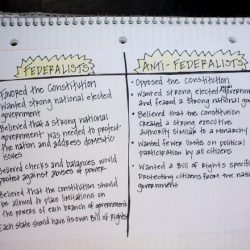 FEDERALISTS
Favored the Constitution
Wanted strong national elected
government
Believed that a strong national
government was needed to protect
the nation and address domestic
issues
Believed checks and balances would
protect against abuses of power
Believed that the constitution should
be allowed to place limitations on
the powers of each branch of government
Each state should have its own Bill of Rights
ANTI-FEDERALISTS
Opposed the Constitution
Wanted strong elected government
and feared a strong national gov
Believed that the constitution
created a strong executive
authority similar to a monarchy
Wanted fewer limits on political
participation by all citizens
Wanted a Bill of Rights specific
Protecting citizens from the nation
government